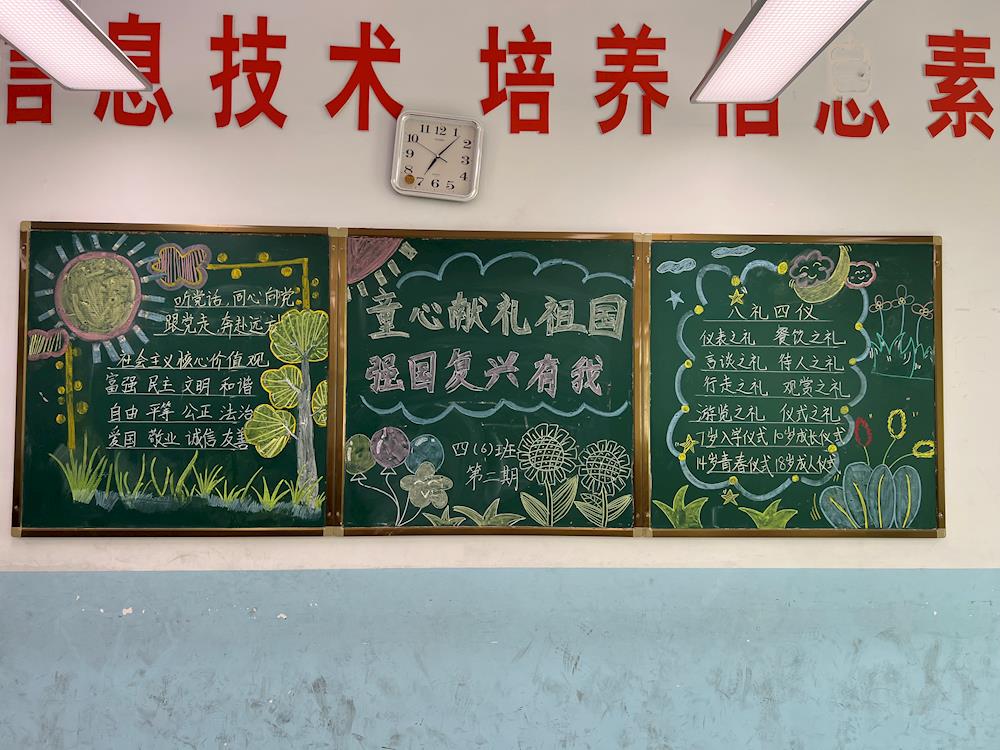 信息技术 培养信息素
11 12 1
10 2
9 3
8 4
7 6 5
听党话,同心向党
跟党走,奔赴远方
社会主义核心价值观
富强 民主 文明 和谐
自由 平等 公正 法治
爱国 敬业 诚信 友善
童心献礼祖国
强国复兴有我
四(6)班
第二期
八礼四仪
仪表之礼 餐饮之礼
言谈之礼 待人之礼
行走之礼 观赏之礼
游览之礼 仪式之礼
7岁入学仪式 10岁成长仪式
14岁青春仪式 18岁成人仪式